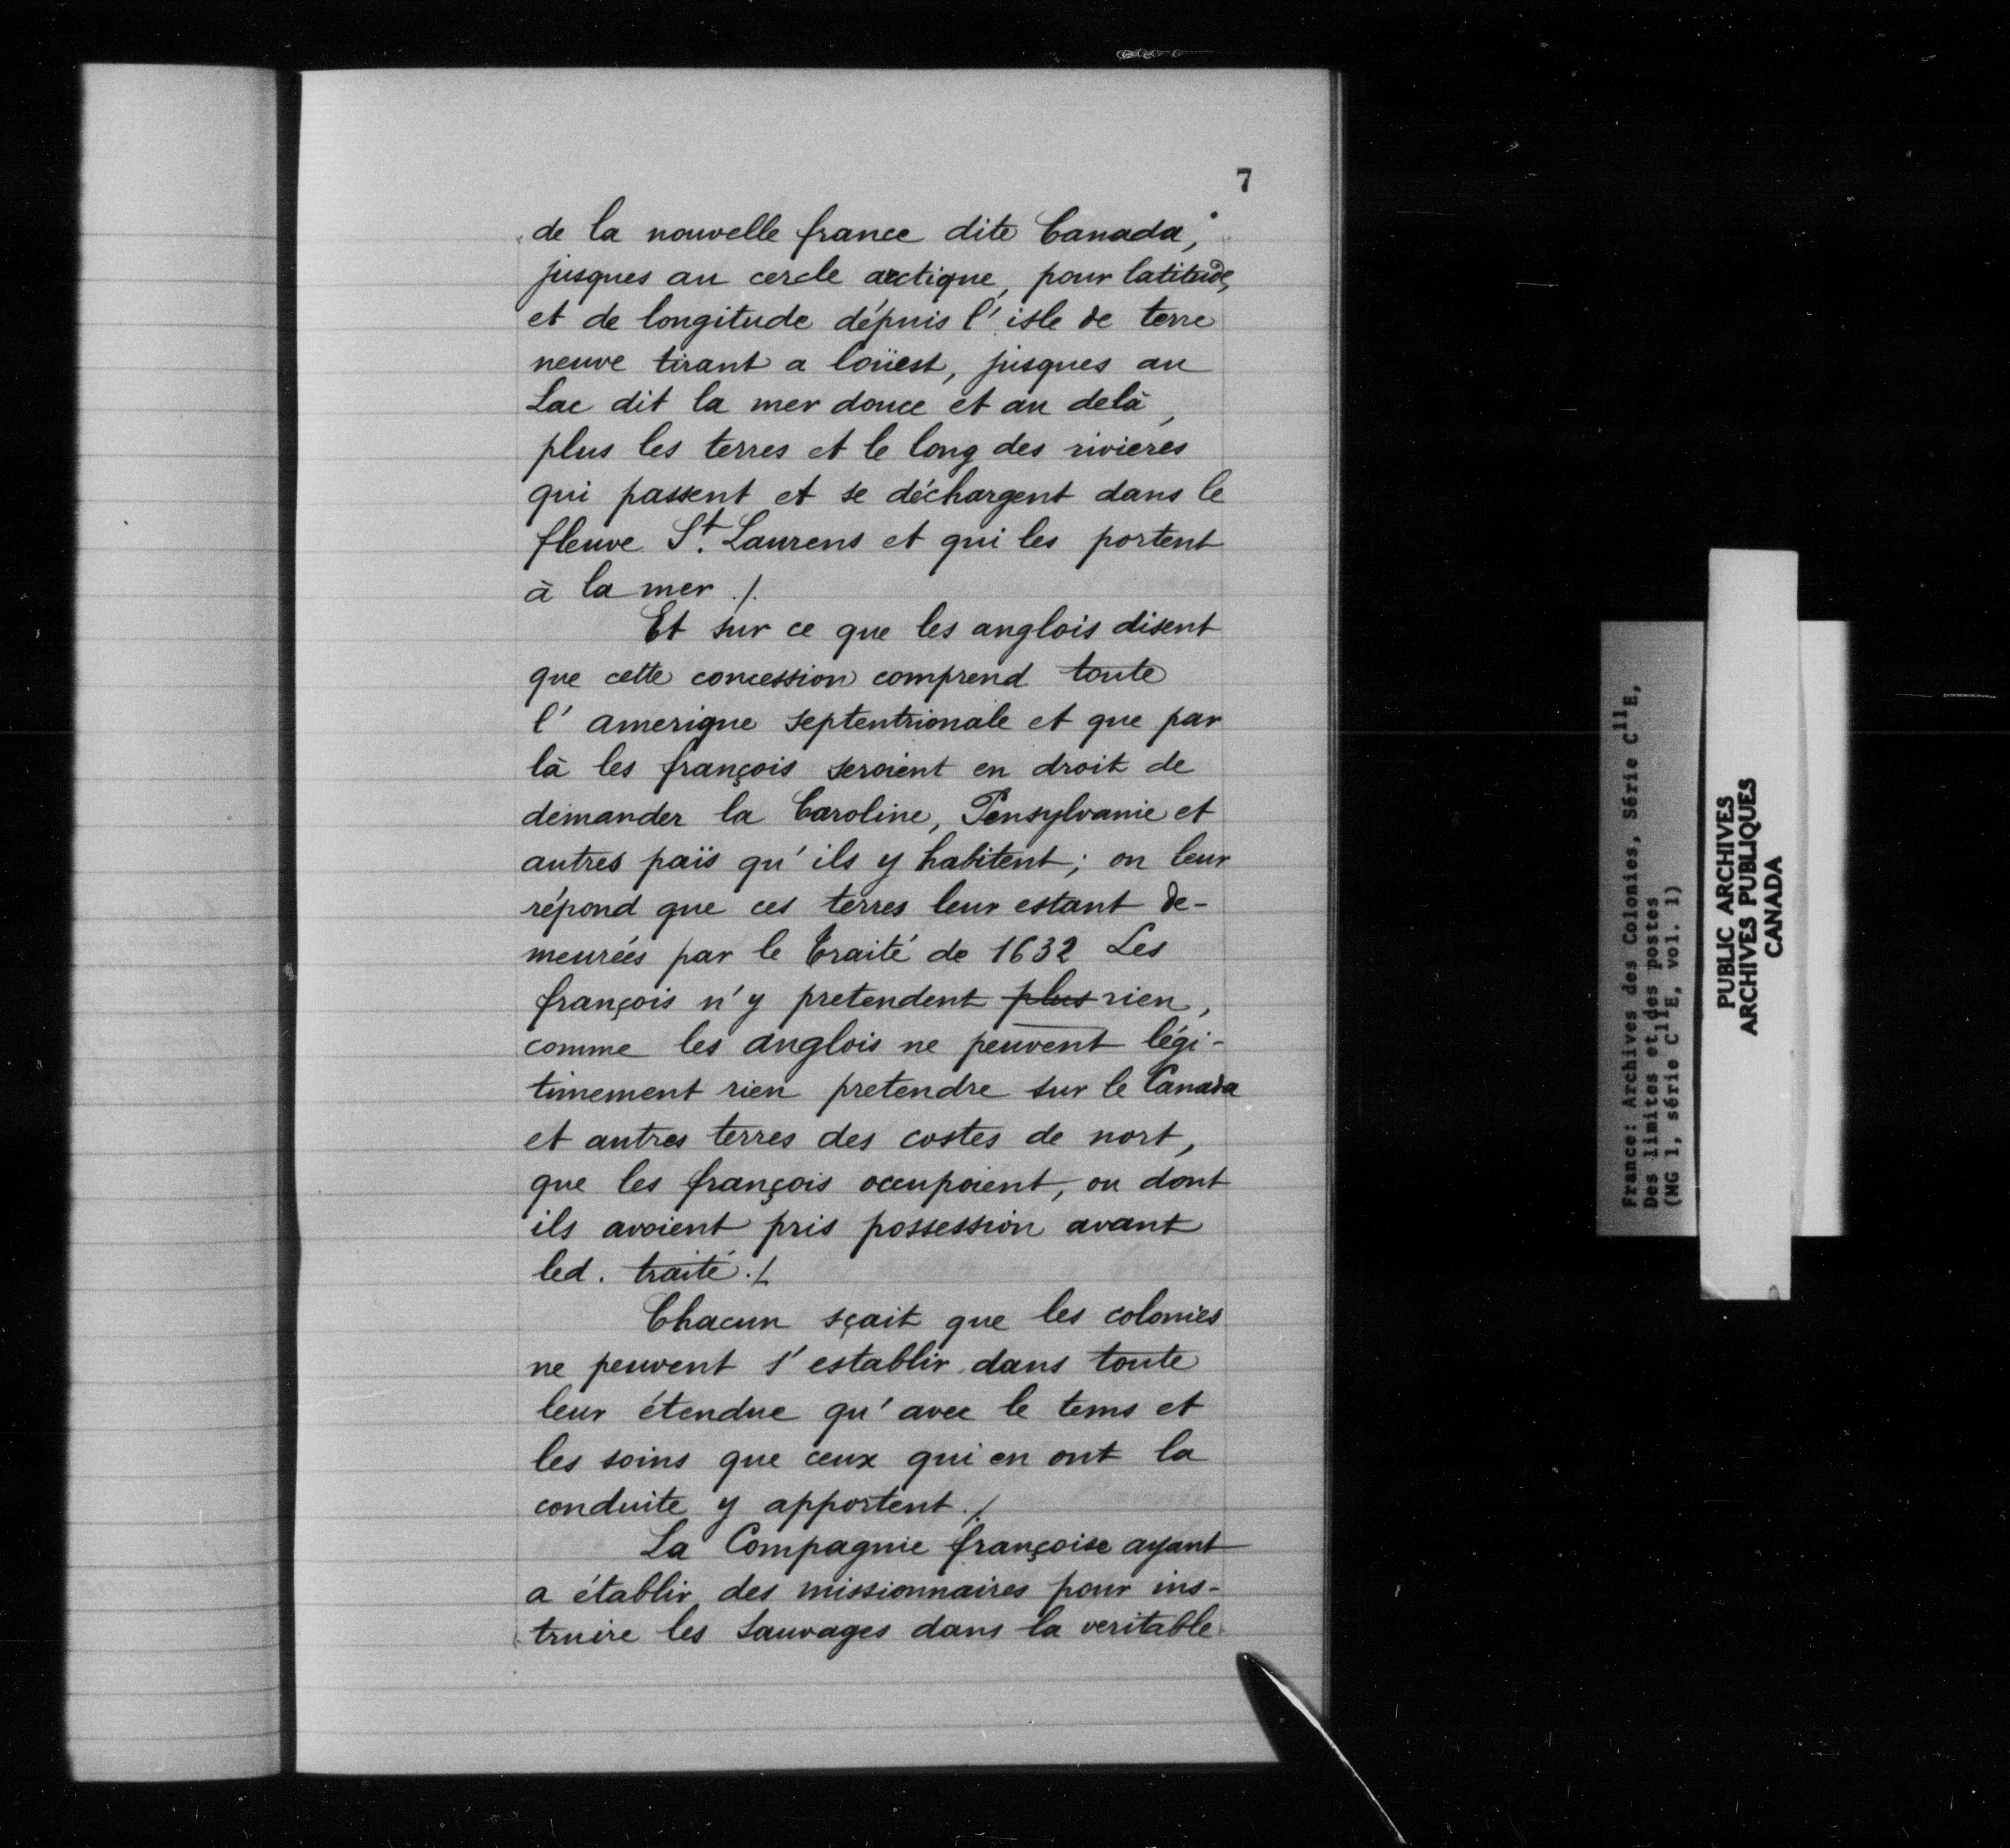 7
de la nouvelle france dite Canada,
jusques au cercle arctique, pour latitude,
et de longitude dépuis l'isle de terre
neuve tirant a loüest, jusques au
Lac dit la mer douce et au delà,
plus les terres et le long des rivieres
qui passent et se déchargent dans le
fleuve St. Laurens et qui les portent
à la mer ./.
Et sur ce que les anglois disent
que cette concession comprend toute
l'amerique septentrionale et que par
là les françois seroient en droit de
demander la Caroline, Pensylvanie et
autres païs qu'ils y habitent; on leur
répond que ces terres leur estant de-
meurées par le traité de 1632 Les
françois n'y pretendent plus rien,
comme les anglois ne peuvent légi-
timement rien pretendre sur le Canada
et autres terres des costes de nort,
que les françois occupoient, ou dont
ils avoient pris possession avant
led. traité ./.
Chacun sçait que les colonies
ne peuvent s'establir dans toute
leur étendue qu'avec le tems et
les soins que ceux qui en ont la
conduite y apportent ./.
La Compagnie françoise ayant
a établir des missionnaires pour ins-
truire les Sauvages dans la veritable
France: Archives des Colonies, Série C11E,
Des limites et des postes
(MG 1, série C11E, vol. 1)
PUBLIC ARCHIVES
ARCHIVES PUBLIQUES
CANADA